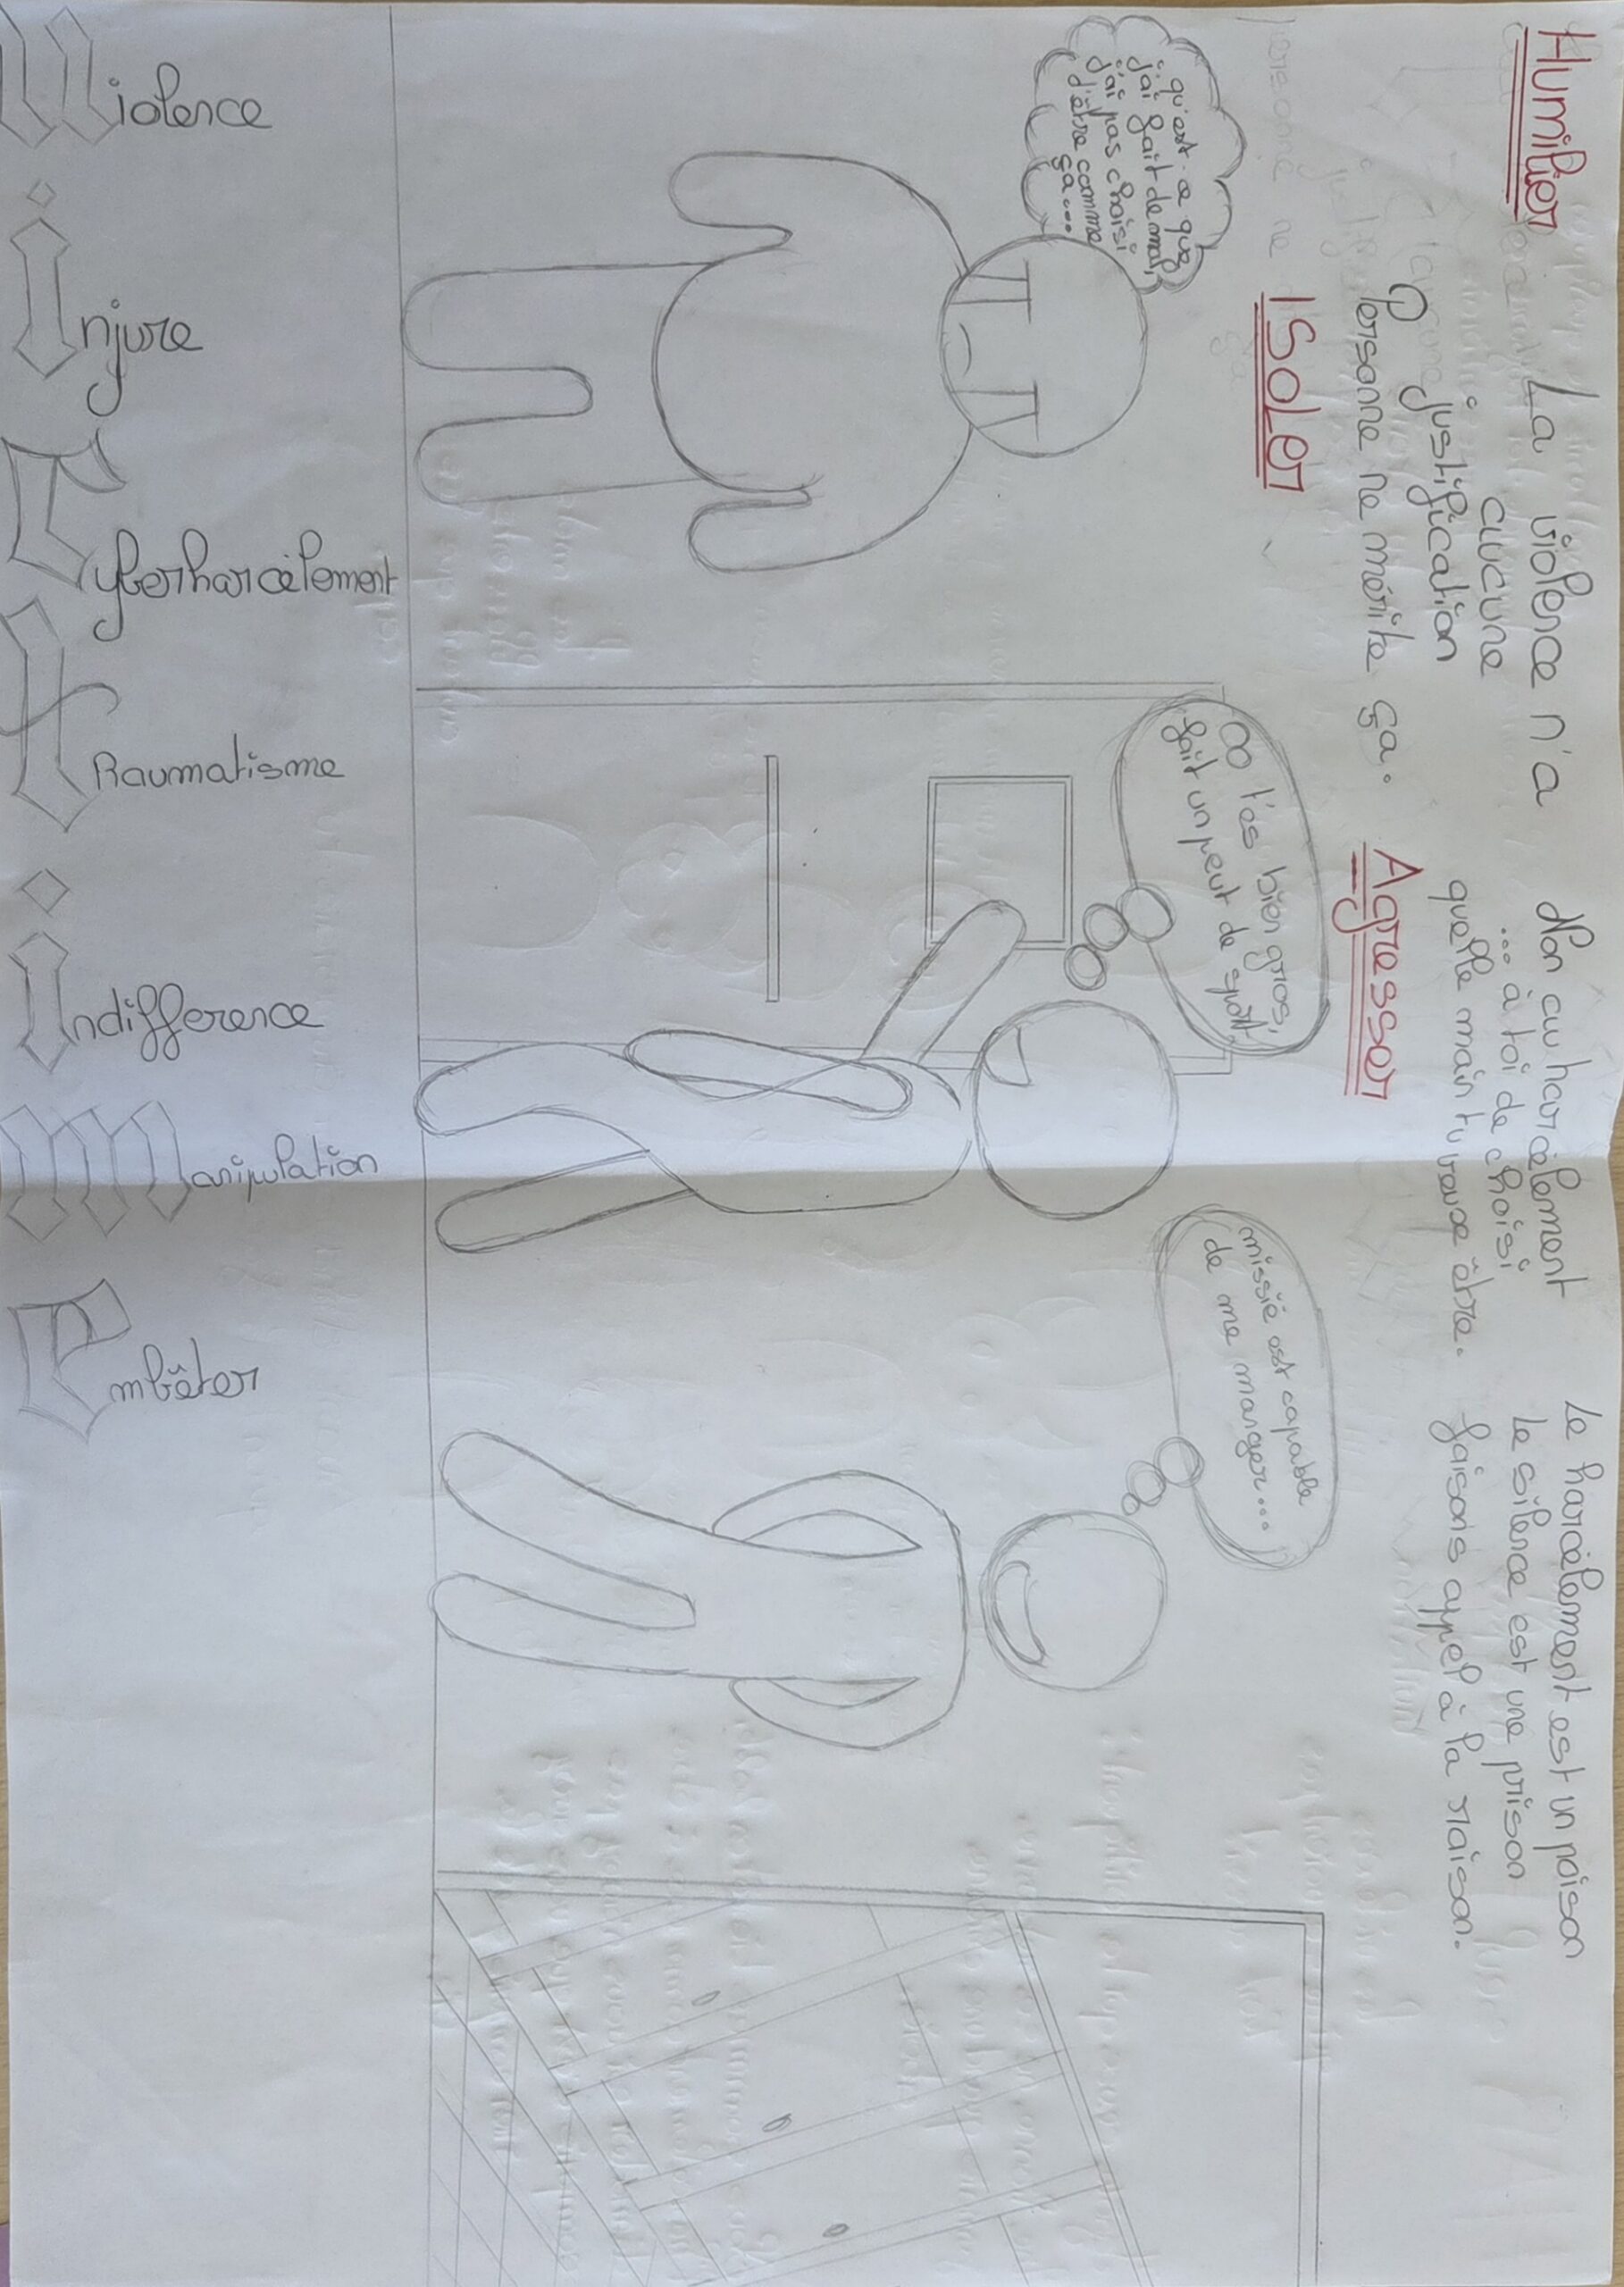 Humilier
La violence n'a
aucune
justification
Personne ne mérite ça.
Non au harcèlement
... à toi de choisi
quelle main tu veux être.
Le harcèlement est un poison
Le silence est une prison
faisons appel à la raison.
ISoler
Agresser
qu'est-ce que
j'ai fait de mal,
j'ai pas choisi
d'être comme
ça...
OO t'es bien gros,
fait un peut de sport
missié est capable
de me manger...
Violence
Injure
Cyberharcèlement
TRaumatisme
Indifference
Manipulation
Embêter